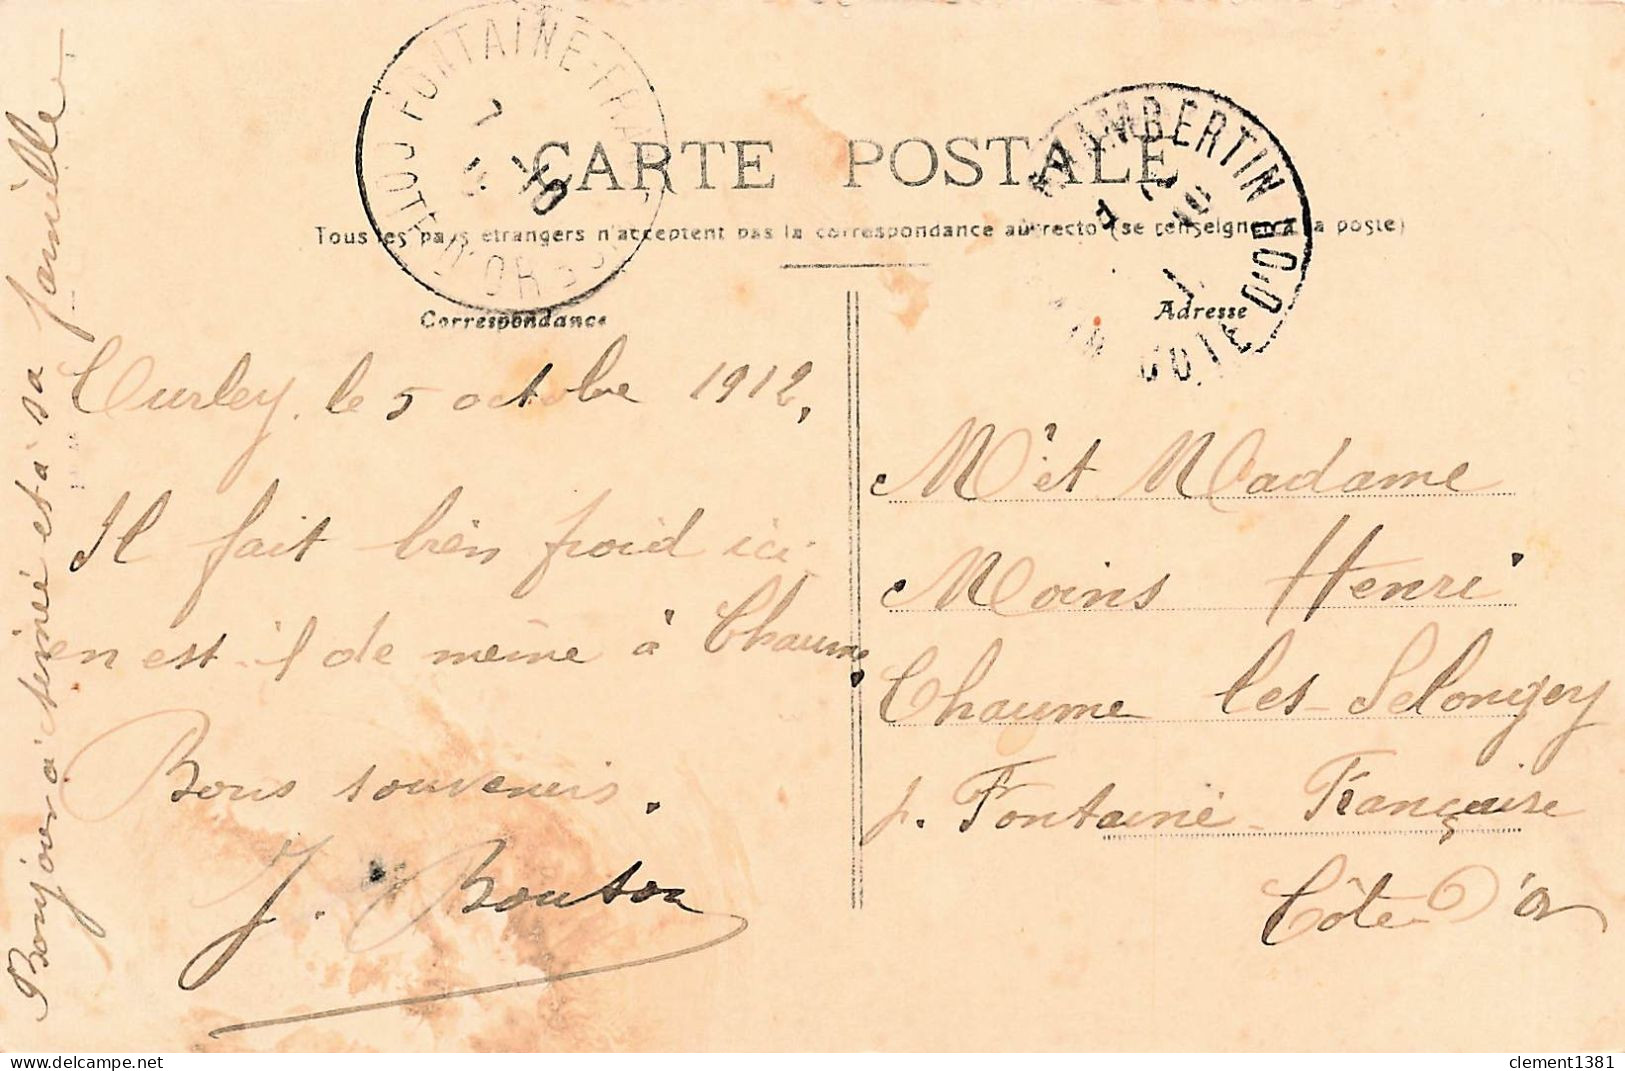 FONTAINE-FRANÇ
CÔTE D'OR
CHAMBERTIN
CÔTE D'OR
CARTE POSTALE
Tous les pays étrangers n'acceptent pas la correspondance au recto (se renseigner à la poste)
Correspondance
Adresse
Curley, le 5 octobre 1912,
Il fait bien froid ici
en est-il de même à Chaume
Bons souvenirs.
J. Bouton
Bonjour à et à sa famille
Mr et Madame
Moins Henri
Chaume les-Selongey
p. Fontaine-Française
Côte-D'or
clement1381